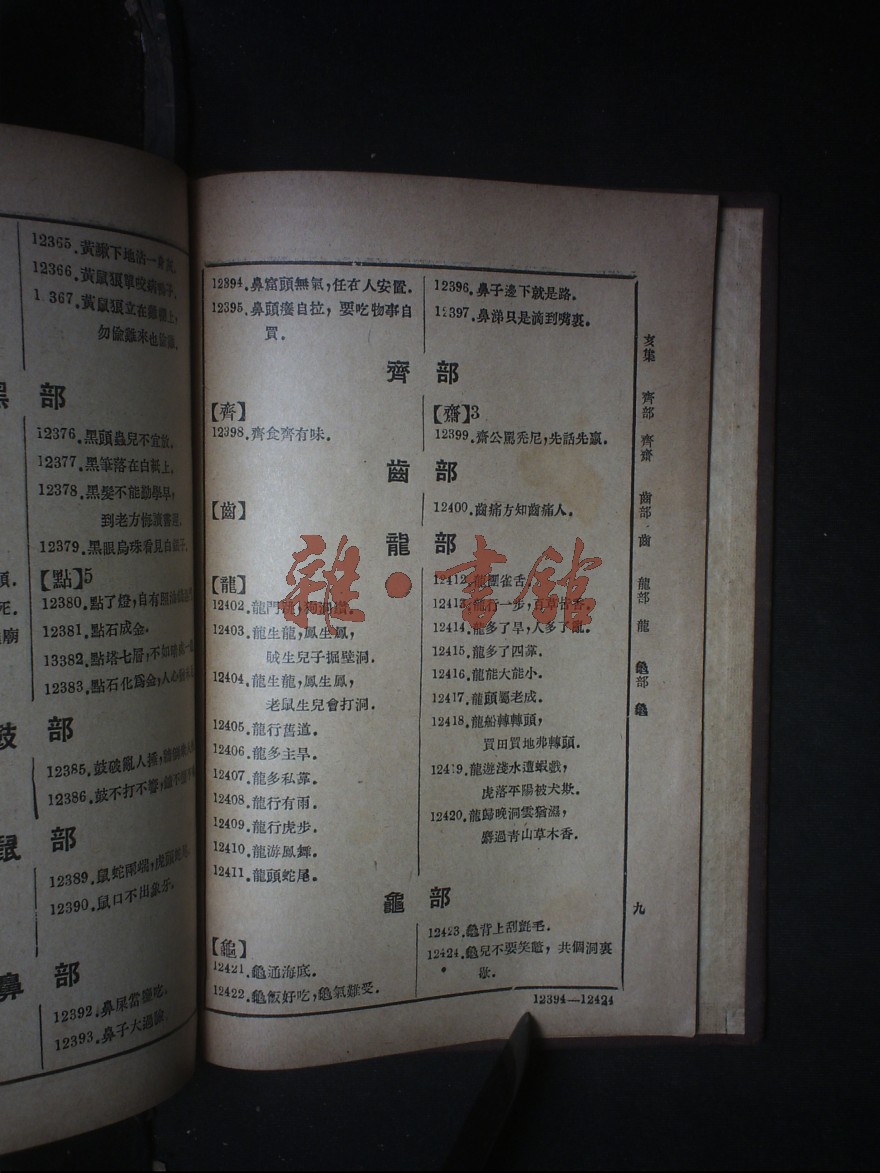 12365.黃鰍下地沾一身
12366.黃鼠狼單咬病鴨子.
1 367.黃鼠狼立在雞棚上,
勿偷雞來也偷雞.
黑 部
12376.黑頭蟲兒不宜救.
12377.黑筆落在白紙上.
12378.黑髮不能勤學早,
到老方悔讀書遲.
12379.黑眼烏珠看見白銀子.
【點】5
12380.點了燈,自有照
12381.點石成金.
13382.點塔七層,不如暗處一
12383.點石化爲金,人心
鼓 部
12385.鼓破亂人捶,
12386.鼓不打不響,
鼠 部
12389.鼠蛇兩端,虎頭蛇尾.
12390.鼠口不出象牙.
鼻 部
12392.鼻屎當鹽吃.
12393.鼻子大過臉.
頭.
死.
廟
12394.鼻窟頭無氣,任在人安置.
12395.鼻頭癢自拉,要吃物事自
買.
12396.鼻子邊下就是路.
12397.鼻涕只是滴到嘴裏.
齊 部
【齊】
12398.齊食齊有味.
【齋】3
12399.齋公罵禿尼,先話先贏.
齒 部
【齒】
12400.齒痛方知齒痛人.
龍 部
【龍】
12402.龍門跳,狗洞
12403.龍生龍,鳳生鳳,
賊生兒子掘壁洞.
12404.龍生龍,鳳生鳳,
老鼠生兒會打洞.
12405.龍行舊道.
12406.龍多主旱.
12407.龍多私靠.
12408.龍行有雨.
12409.龍行虎步.
12410.龍游鳳舞.
12411.龍頭蛇尾.
12412.龍團雀舌.
12413.龍行一步,百草皆香.
12414.龍多了旱,人多了亂.
12415.龍多了四靠.
12416.龍能大能小.
12417.龍頭屬老成.
12418.龍船轉轉頭,
買田買地弗轉頭.
12419.龍遊淺水遭蝦戲,
虎落平陽被犬欺.
12420.龍歸晚洞雲猶濕,
麝過青山草木香.
龜 部
【龜】
12421.龜通海底.
12422.龜飯好吃,龜氣難受.
12423.龜背上刮氈毛.
12424.龜兒不要笑鼈,共個洞裏
歇.
12394—12424
亥集 齊部 齊齋 齒部 齒 龍部 龍 龜部 龜
九
雜·書館